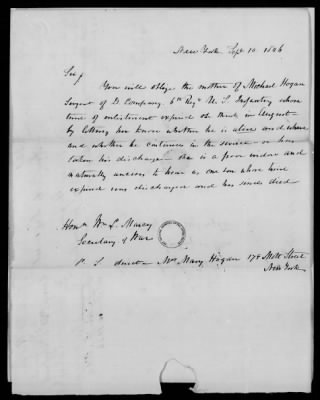 New York Sept 10. 1846
Sir,
You will oblige the mother of Michael Hogan
Sergent of D. Company. 6th Regt U. S. Infantry whose
time of enlistment expired on third in August
by letting her know whether he is alive and where
and whether he continues in the service or has
taken his discharge She is a poor widow and
naturally anxious to hear as one son whose time
expired was discharged and has since died
Honbl Wm L. Marcy
Secretary of War
P. S. direct Mrs Mary Hogan 178 Mott Street
New York